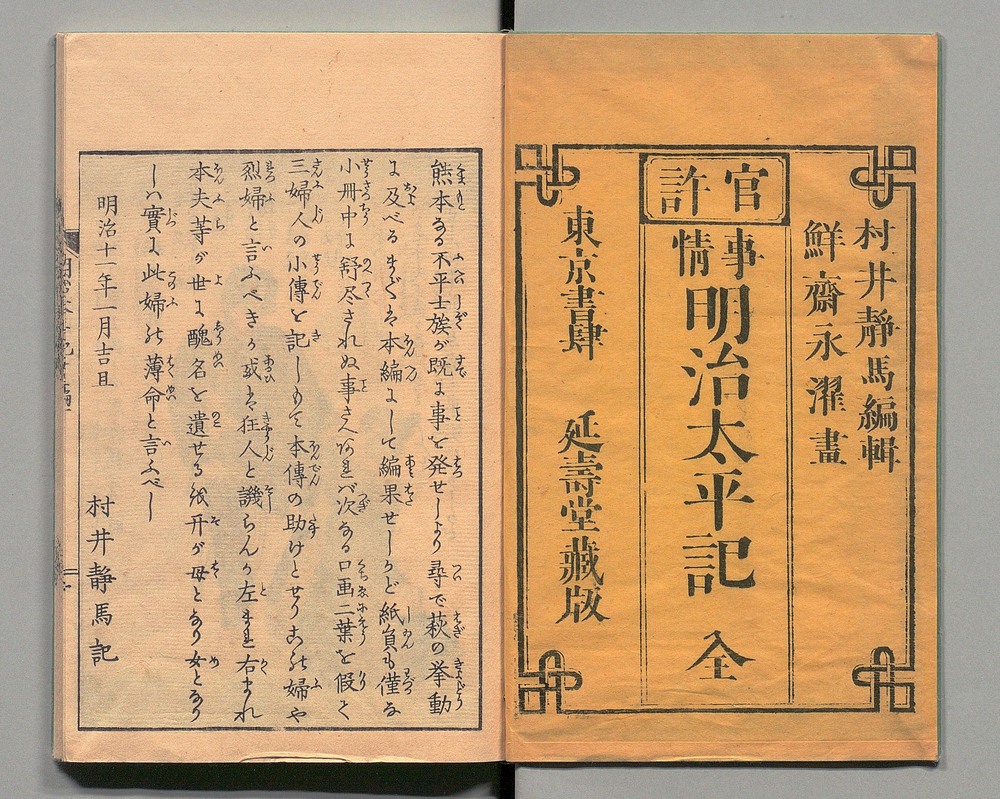 村井靜馬編輯
鮮齋永濯畫
官許
事情
明治太平記 全
東京書肆 延壽堂藏版
熊本なる不平士族が既に事を発せしより尋で萩の挙動
に及べるまでを本編にして編果せしかど紙員も僅なる
小冊中に舒尽されぬ事さへあれバ次なる口画二葉を假て
三婦人の小傳を記しもて本傳の助けとせり
烈婦と言ふべきか或は狂人と譏らんか左まれ右まれ
本夫等が世に醜名を遺せる
しハ實に此婦の薄命と言ふべし
明治十一年一月吉旦
村井靜馬記